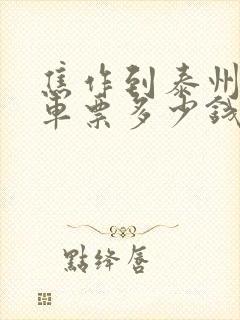 焦作到泰州
车票多少钱
點绛唇